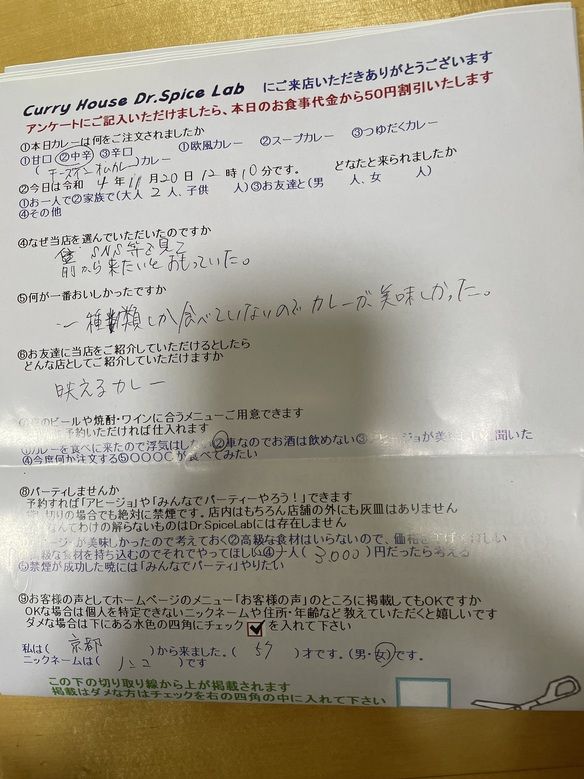 Curry House Dr.Spice Lab にご来店いただきありがとうございます
アンケートにご記入いただけましたら、本日のお食事代金から50円割引いたします
①本日カレーは何をご注文されましたか
①甘口 ②中辛 ③辛口 ①欧風カレー ②スープカレー ③つゆだくカレー
(チーズイン オムカレー)カレー
②今日は令和 4 年 11 月 20 日 12 時 10 分です。 どなたと来られましたか
①お一人で②家族で(大人 2 人、子供 人)③お友達と(男 人、女 人)
④その他
④なぜ当店を選んでいただいたのですか
SNS等を見て
前から来たいとおもっていた。
⑤何が一番おいしかったですか
一種類しか食べていないのでカレーが美味しかった。
⑥お友達に当店をご紹介していただけるとしたら
どんな店としてご紹介していただけますか
映えるカレー
のビールや焼酎・ワインに合うメニューご用意できます
予約いただければ仕入れます
①カレーを食べに来たので浮気はしない②車なのでお酒は飲めない③アヒージョが美味しいと聞いた
④今度何か注文する⑤〇〇〇〇が食べてみたい
⑧パーティしませんか
予約すれば「アヒージョ」や「みんなでパーティーやろう!」できます
貸し切りの場合でも絶対に禁煙です。店内はもちろん店舗の外にも灰皿はありません
なんてわけの解らないものはDr.SpiceLabには存在しません
が美味しかったので考えておく②高級な食材はいらないので、価格を
高級な食材を持ち込むのでそれでやってほしい④大人(3,000)円だったら考える
⑤禁煙が成功した暁には「みんなでパーティ」やりたい
⑨お客様の声としてホームページのメニュー「お客様の声」のところに掲載してもOKですか
OKな場合は個人を特定できないニックネームや住所・年齢など教えていただくと嬉しいです
ダメな場合は下にある水色の四角にチェック を入れて下さい
私は( 京都 )から来ました。( 57 )才です。(男・女)です。
ニックネームは( )です
この下の切り取り線から上が掲載されます
掲載はダメな方はチェックを右の四角の中に入れて下さい